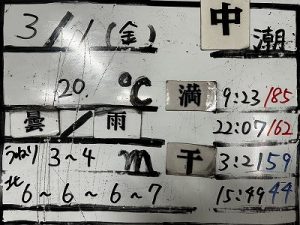 3/1(金) 中 潮
20. ℃ 満 9:23/185
曇/雨 22:07/162
うねり 3~4 m 干 3:21 59
北 6~6~6~7 15:49 44